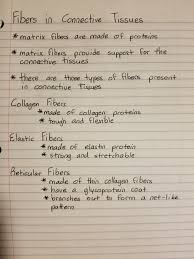 Fibers in Connective Tissues
* matrix fibers are made of proteins
* matrix fibers provide support for the
connective tissues
* there are three types of fibers present
in connective tissues
Collagen Fibers
* made of collagen proteins
* tough and flexible
Elastic Fibers
* made of elastin protein
* strong and stretchable
Reticular Fibers
* made of thin collagen fibers
* have a glycoprotein coat
* branches out to form a net-like
pattern